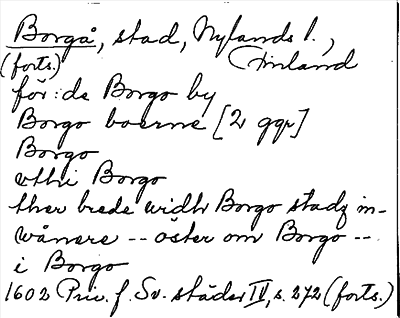 Borgå, stad, Nylands l.,
(forts.) Finland
för: de Borgo by
Borgo boerne [2 ggr]
Borgo
vthi Borgo
ther brede widh Borgo stadz in-
wånere -- öster om Borgo --
i Borgo
1602 Priv. f. Sv. städer IV, s. 272 (forts.)